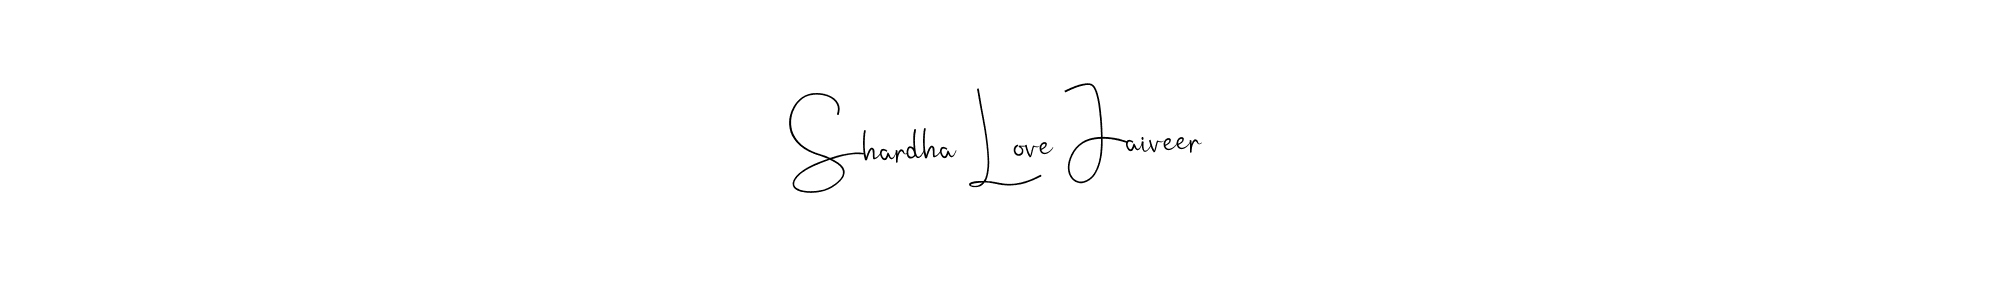 Shardha Love Jaiveer